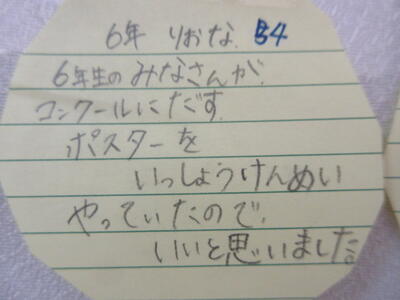 6年 りおな. B4
6年生の みなさんが.
コンクールに だす.
ポスターを
いっしょうけんめい
やっていたので.
いいと思いました。